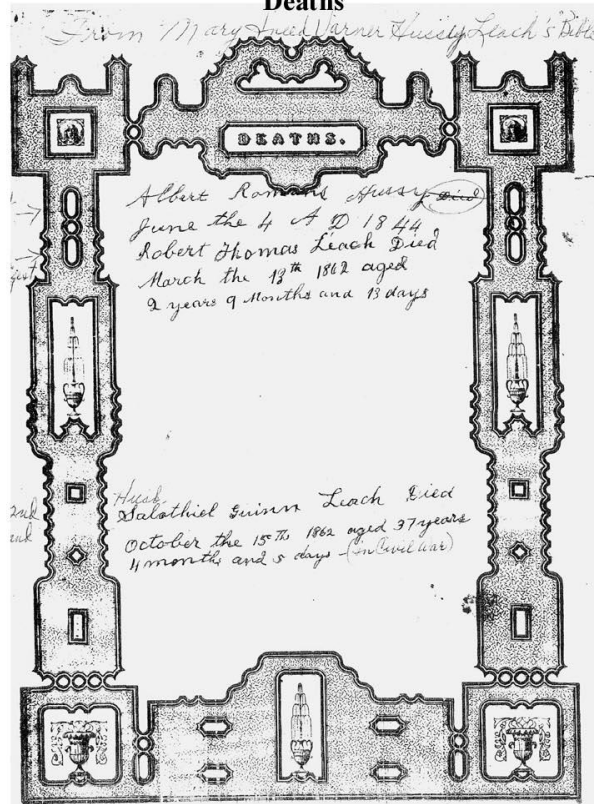 Deaths
From Mary Warner Hussey Leach's Bible
DEATHS.
Albert Romans Hussy Died
June the 4 A D 1844
Robert Thomas Leach Died
March the 13th 1862 aged
2 years 9 Months and 13 days
Husb.
Salathiel Guinn Leach Died
October the 15th 1862 aged 37 years
4 months and 5 days - (in Civil War)